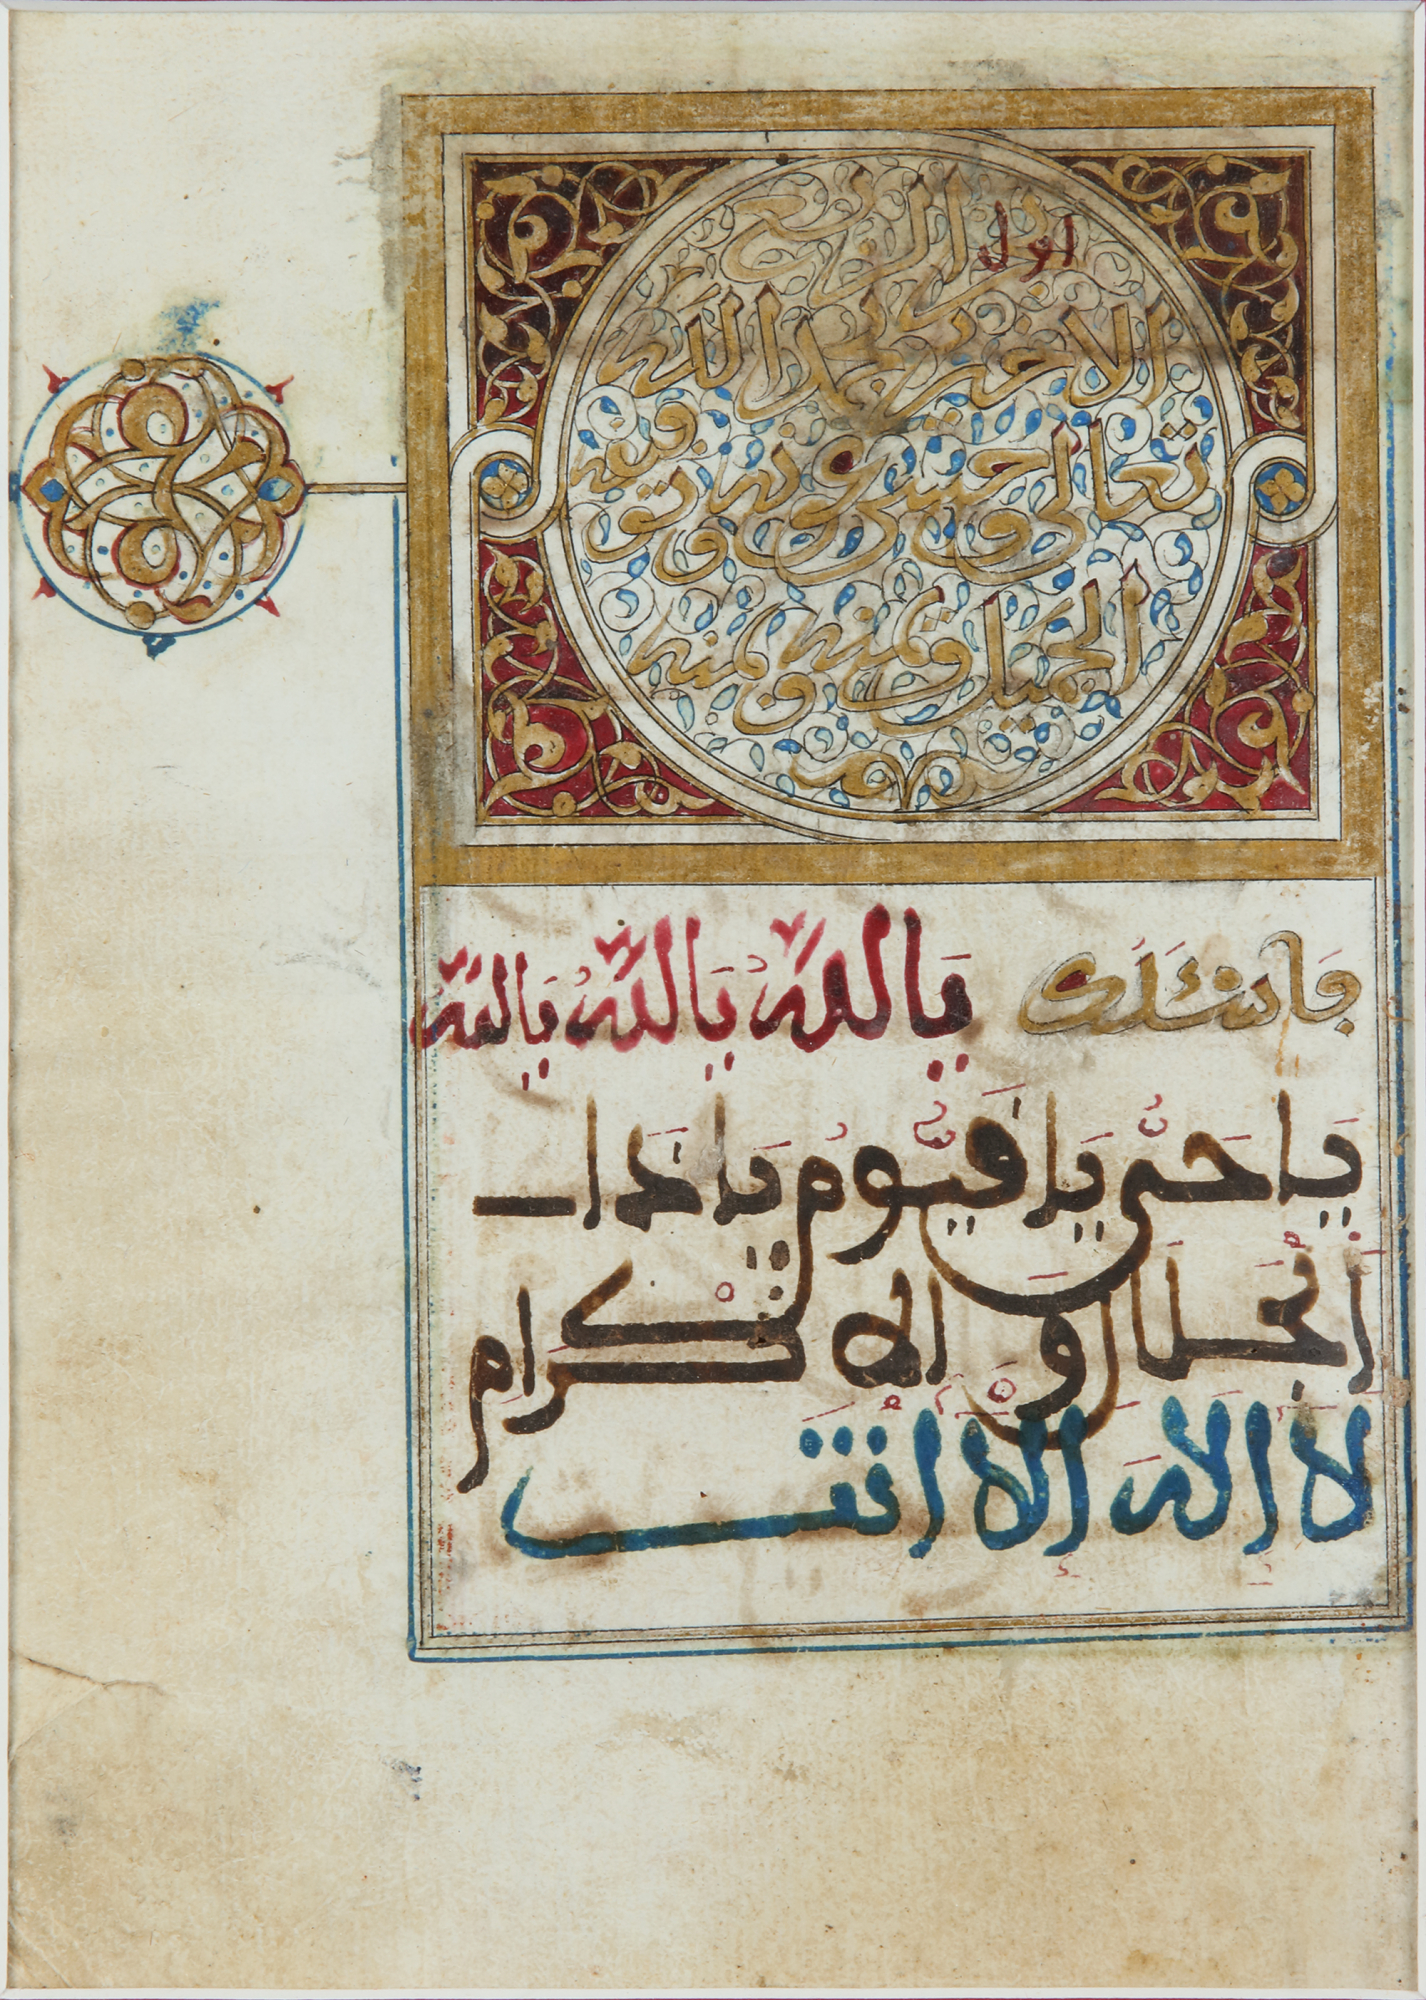 اول
الربع
الاخير بحمد الله
تعالى وحسن عونه وتوفيقه
الجميل
فاسئلك يالله يالله يالله
ياحي يا قيوم ياذا
الجلال والاكرام
لا إله إلا أنت